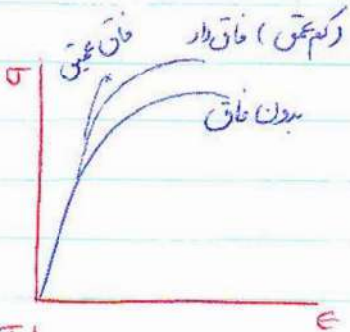 (کم عمق) فاق دار
فاق عمیق
بدون فاق
σ
ε